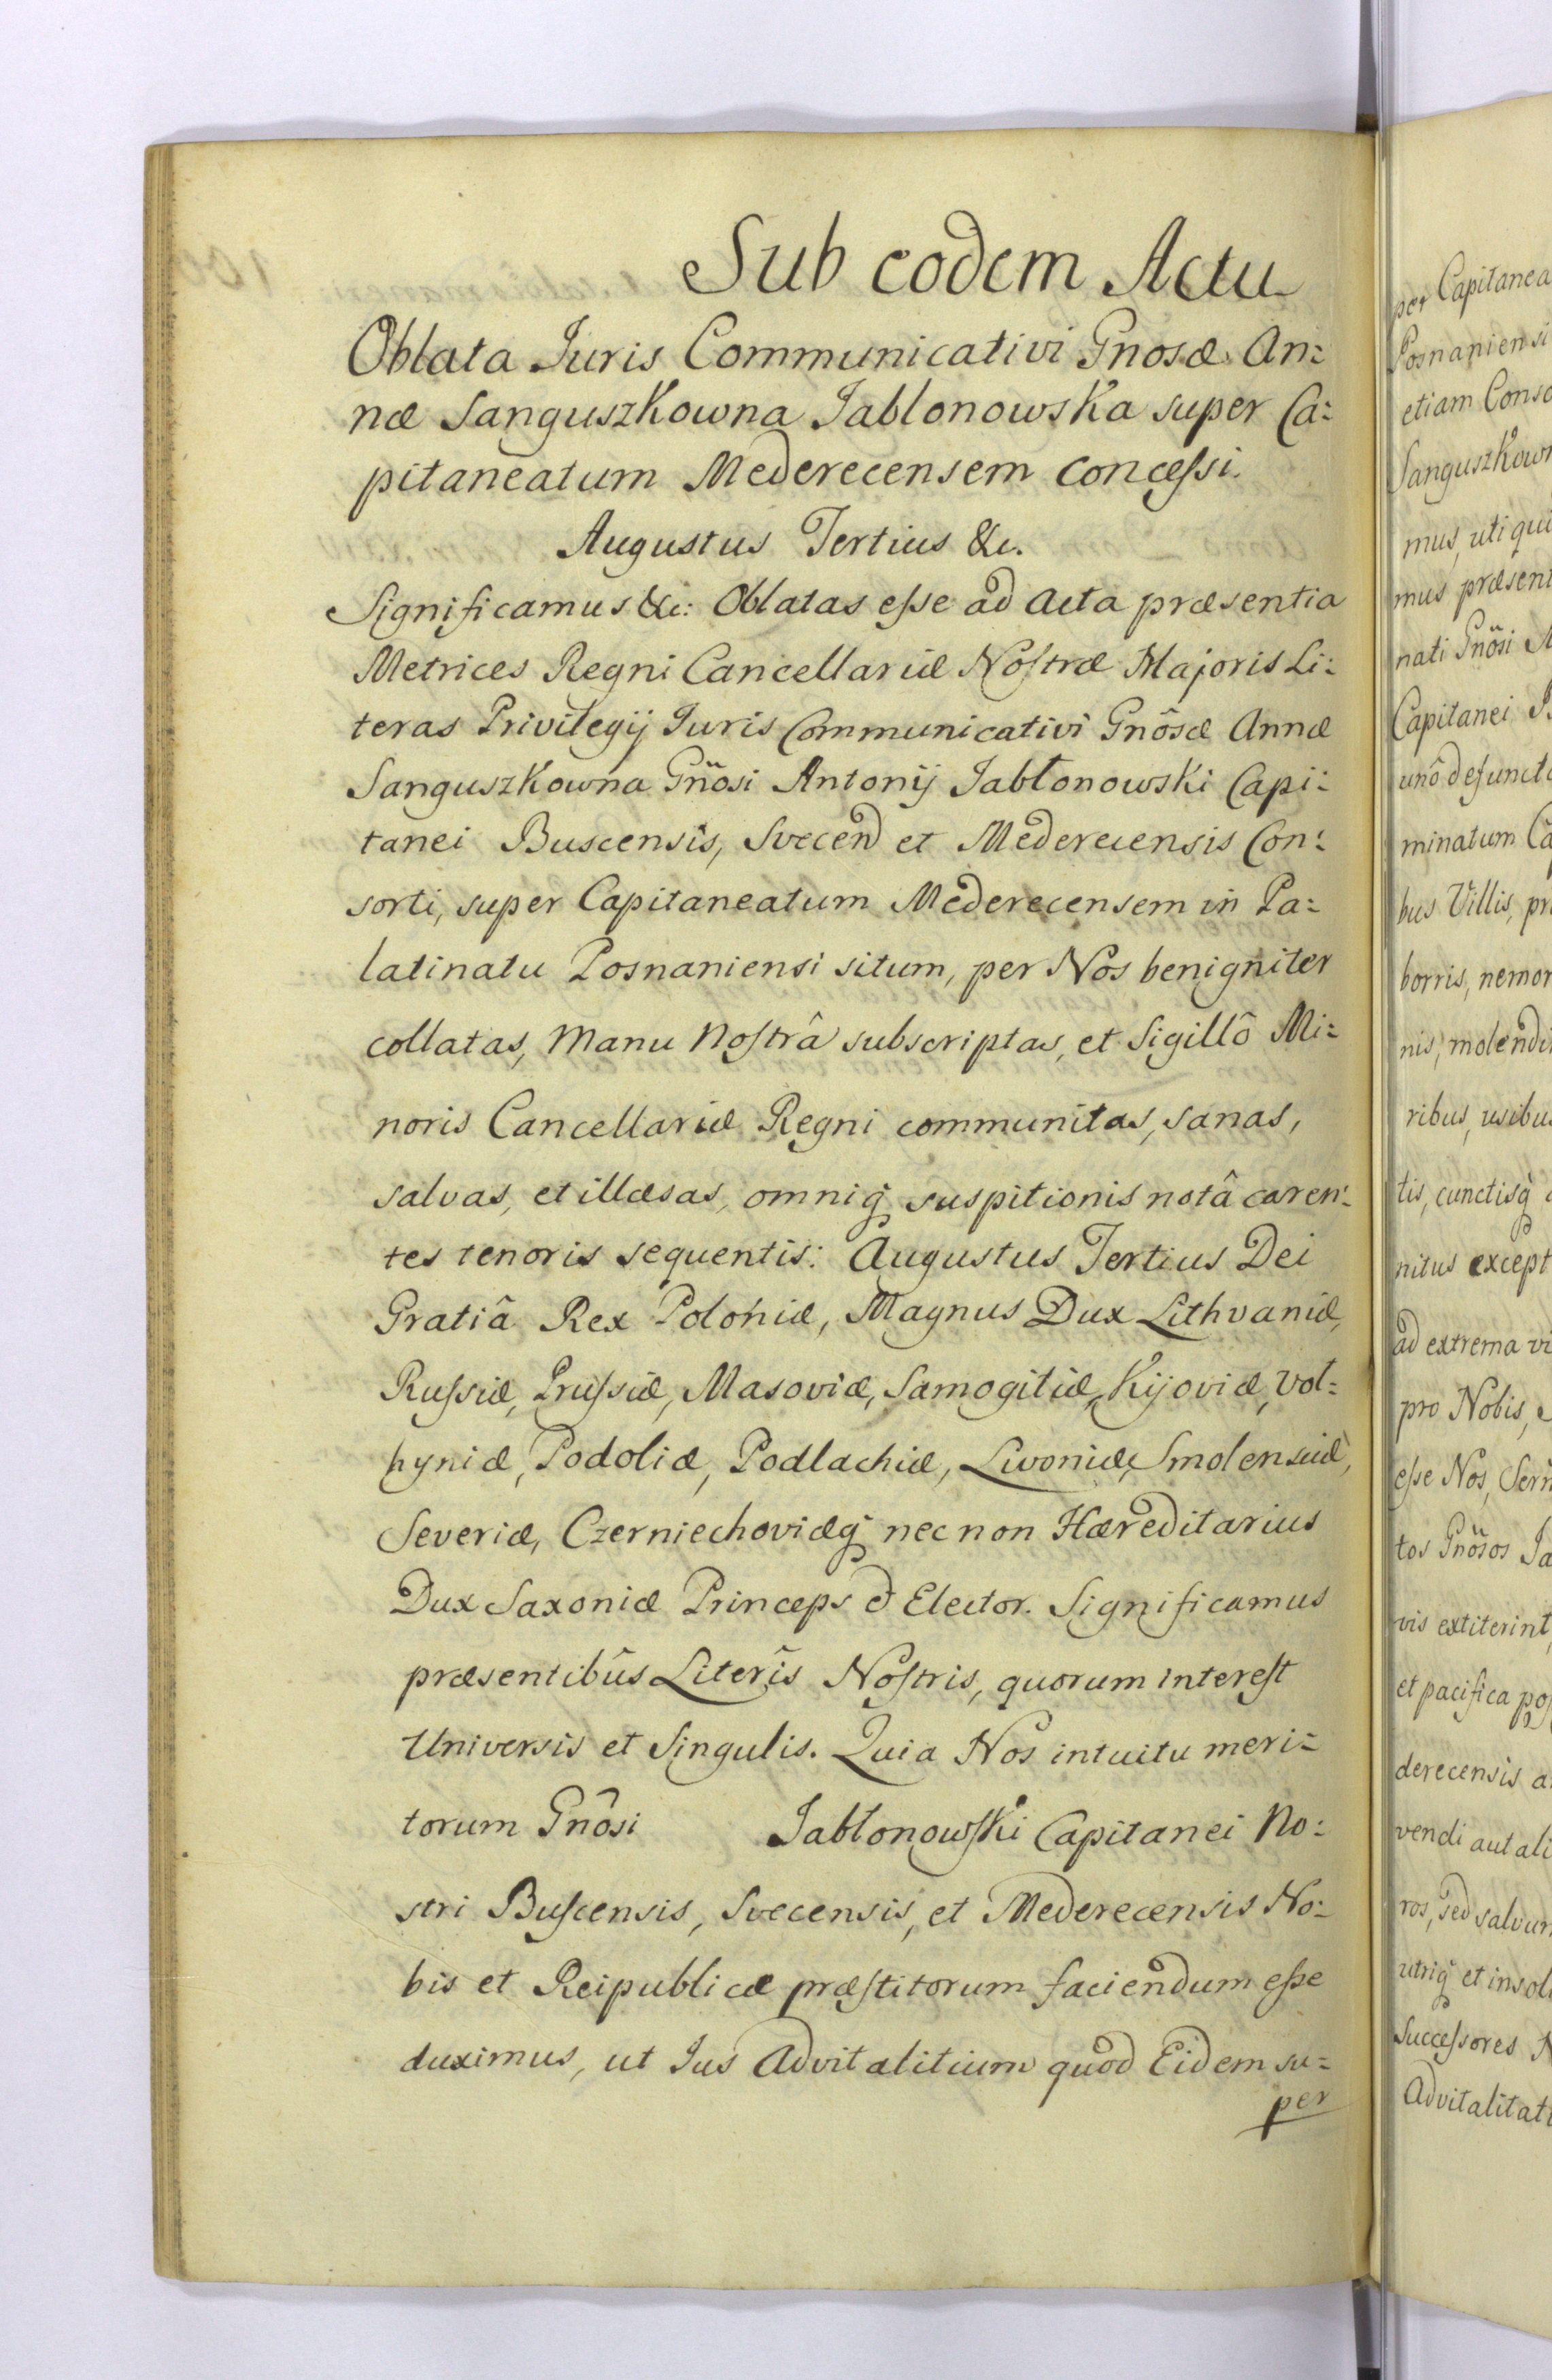 Sub eodem Actu
Oblata Iuris Communicativi Gnosæ An=
næ Sanguszkowna Jablonowska super Ca=
pitaneatum Mederecensem concessi.
Augustus Tertius &c.
Significamus &c: Oblatas esse ad Acta præsentia
Metrices Regni Cancellariæ Nostræ Majoris Li=
teras Privilegij Iuris Communicativi Gnôsæ Annæ
Sanguszkowna Gnosi Antonij Jabłonowski Capi=
tanei Buscensis, Svecend et Mederecensis Con=
sorti, super Capitaneatum Mederecensem in Pa=
latinatu Posnaniensi situm, per Nos benigniter
collatas, Manu Nostrâ subscriptas, et Sigillô Mi=
noris Cancellariæ Regni communitas, sanas,
salvas, et illæsas, omniq suspitionis notâ caren=
tes tenoris sequentis: Augustus Tertius Dei
Gratiâ Rex Poloniæ, Magnus Dux Lithvaniæ,
Russiæ, Prussiæ, Masoviæ, Samogitiæ, Kijoviæ, Vol=
hyniæ, Podoliæ, Podlachiæ, Livoniæ, Smolensciæ,
Severiæ, Czerniechoviæq nec non Hæreditarius
Dux Saxoniæ Princeps & Elector. Significamus
præsentibûs Literîs Nostris, quorum interest
Universis et Singulis. Quia Nos intuitu meri=
torum Gnôsi Jabłonowski Capitanei No=
stri Buscensis, Svecensis, et Mederecensis No=
bis et Reipublicæ præstitorum faciendum esse
duximus, ut Ius Advitalitium quod Eidem su=
per
per Capitanea
Posnaniensi
etiam Conso
Sanguszkown
mus, uti qui
mus præsent
nati Gnôsi
Capitanei
unô defuncto
minatum Ca
bus Villis, pr
borris, nemor
nis, molendi
ribus, usibus
tis, cunctisq
nitus except
ad extrema vi
pro Nobis,
esse Nos, Sern
tos Gnosos Ja
vis extiterint,
et pacifica pos
derecensis a
vendi aut ali
ros, sed salvum
utriq et insol
Successores N
Advitalitati